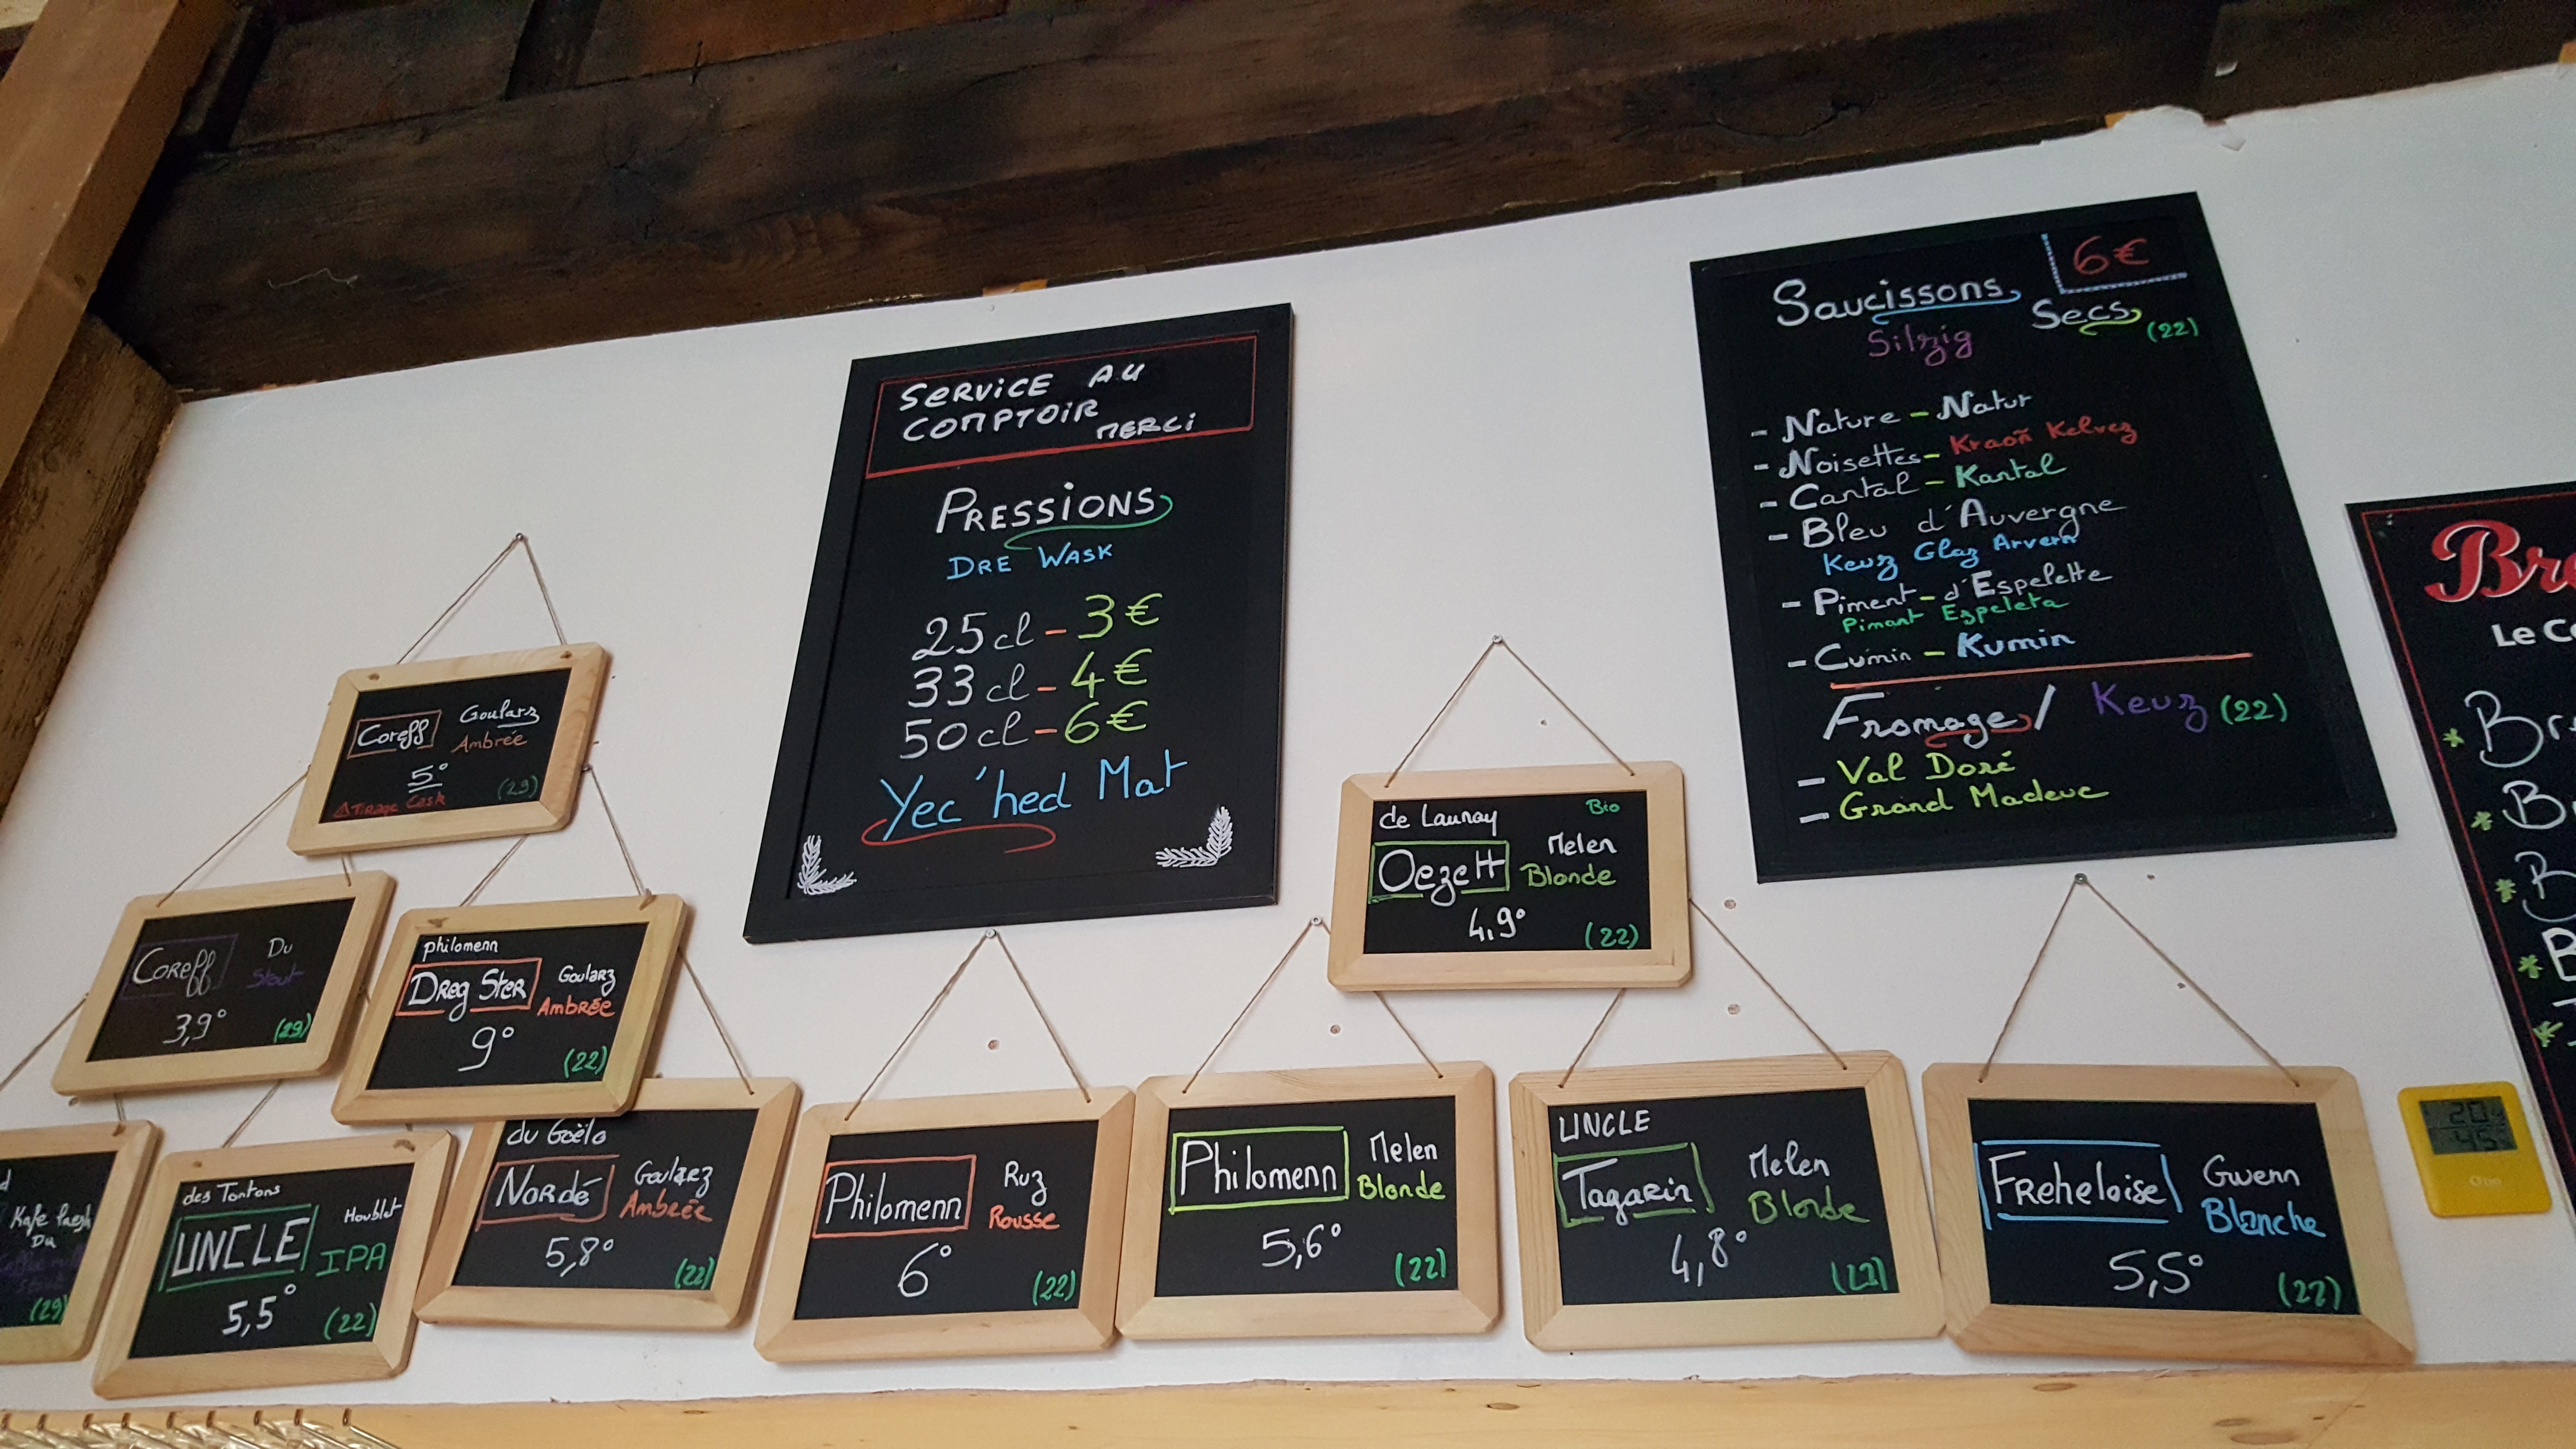 SERVICE AU
COMPTOIR
MERCI
PRESSIONS
DRE WASK
25 cl - 3€
33 cl - 4€
50 cl - 6€
Yec'hed Mat
6€
Saucissons
Secs
Silzig
(22)
- Nature - Natur
- Noisettes - Kraoñ Kelvez
- Cantal - Kantal
- Bleu d'Auvergne
Keuz Glaz Arvern
- Piment - d'Espelette
Pimant Ezpeleta
- Cumin - Kumin
Fromage / Keuz (22)
- Val Doré
- Grand Madeuc
Bre
Le Co
Coreff Goularz
Ambrée
5°
△ Tirage Cask (29)
Coreff Du
Stout
3,9° (29)
philomenn
Dreg Ster Goularz
Ambrée
9° (22)
de Launay Bio
Oezett Melen
Blonde
4,9° (22)
Kafe
Du
(29)
des Tontons
UNCLE Houblet
IPA
5,5° (22)
du Goëlo
Nordé Goularz
Ambrée
5,8° (22)
Philomenn Ruz
Rousse
6° (22)
Philomenn Melen
Blonde
5,6° (22)
UNCLE
Tagarin Melen
Blonde
4,8° (22)
Freheloise Gwenn
Blanche
5,5° (22)
20
45